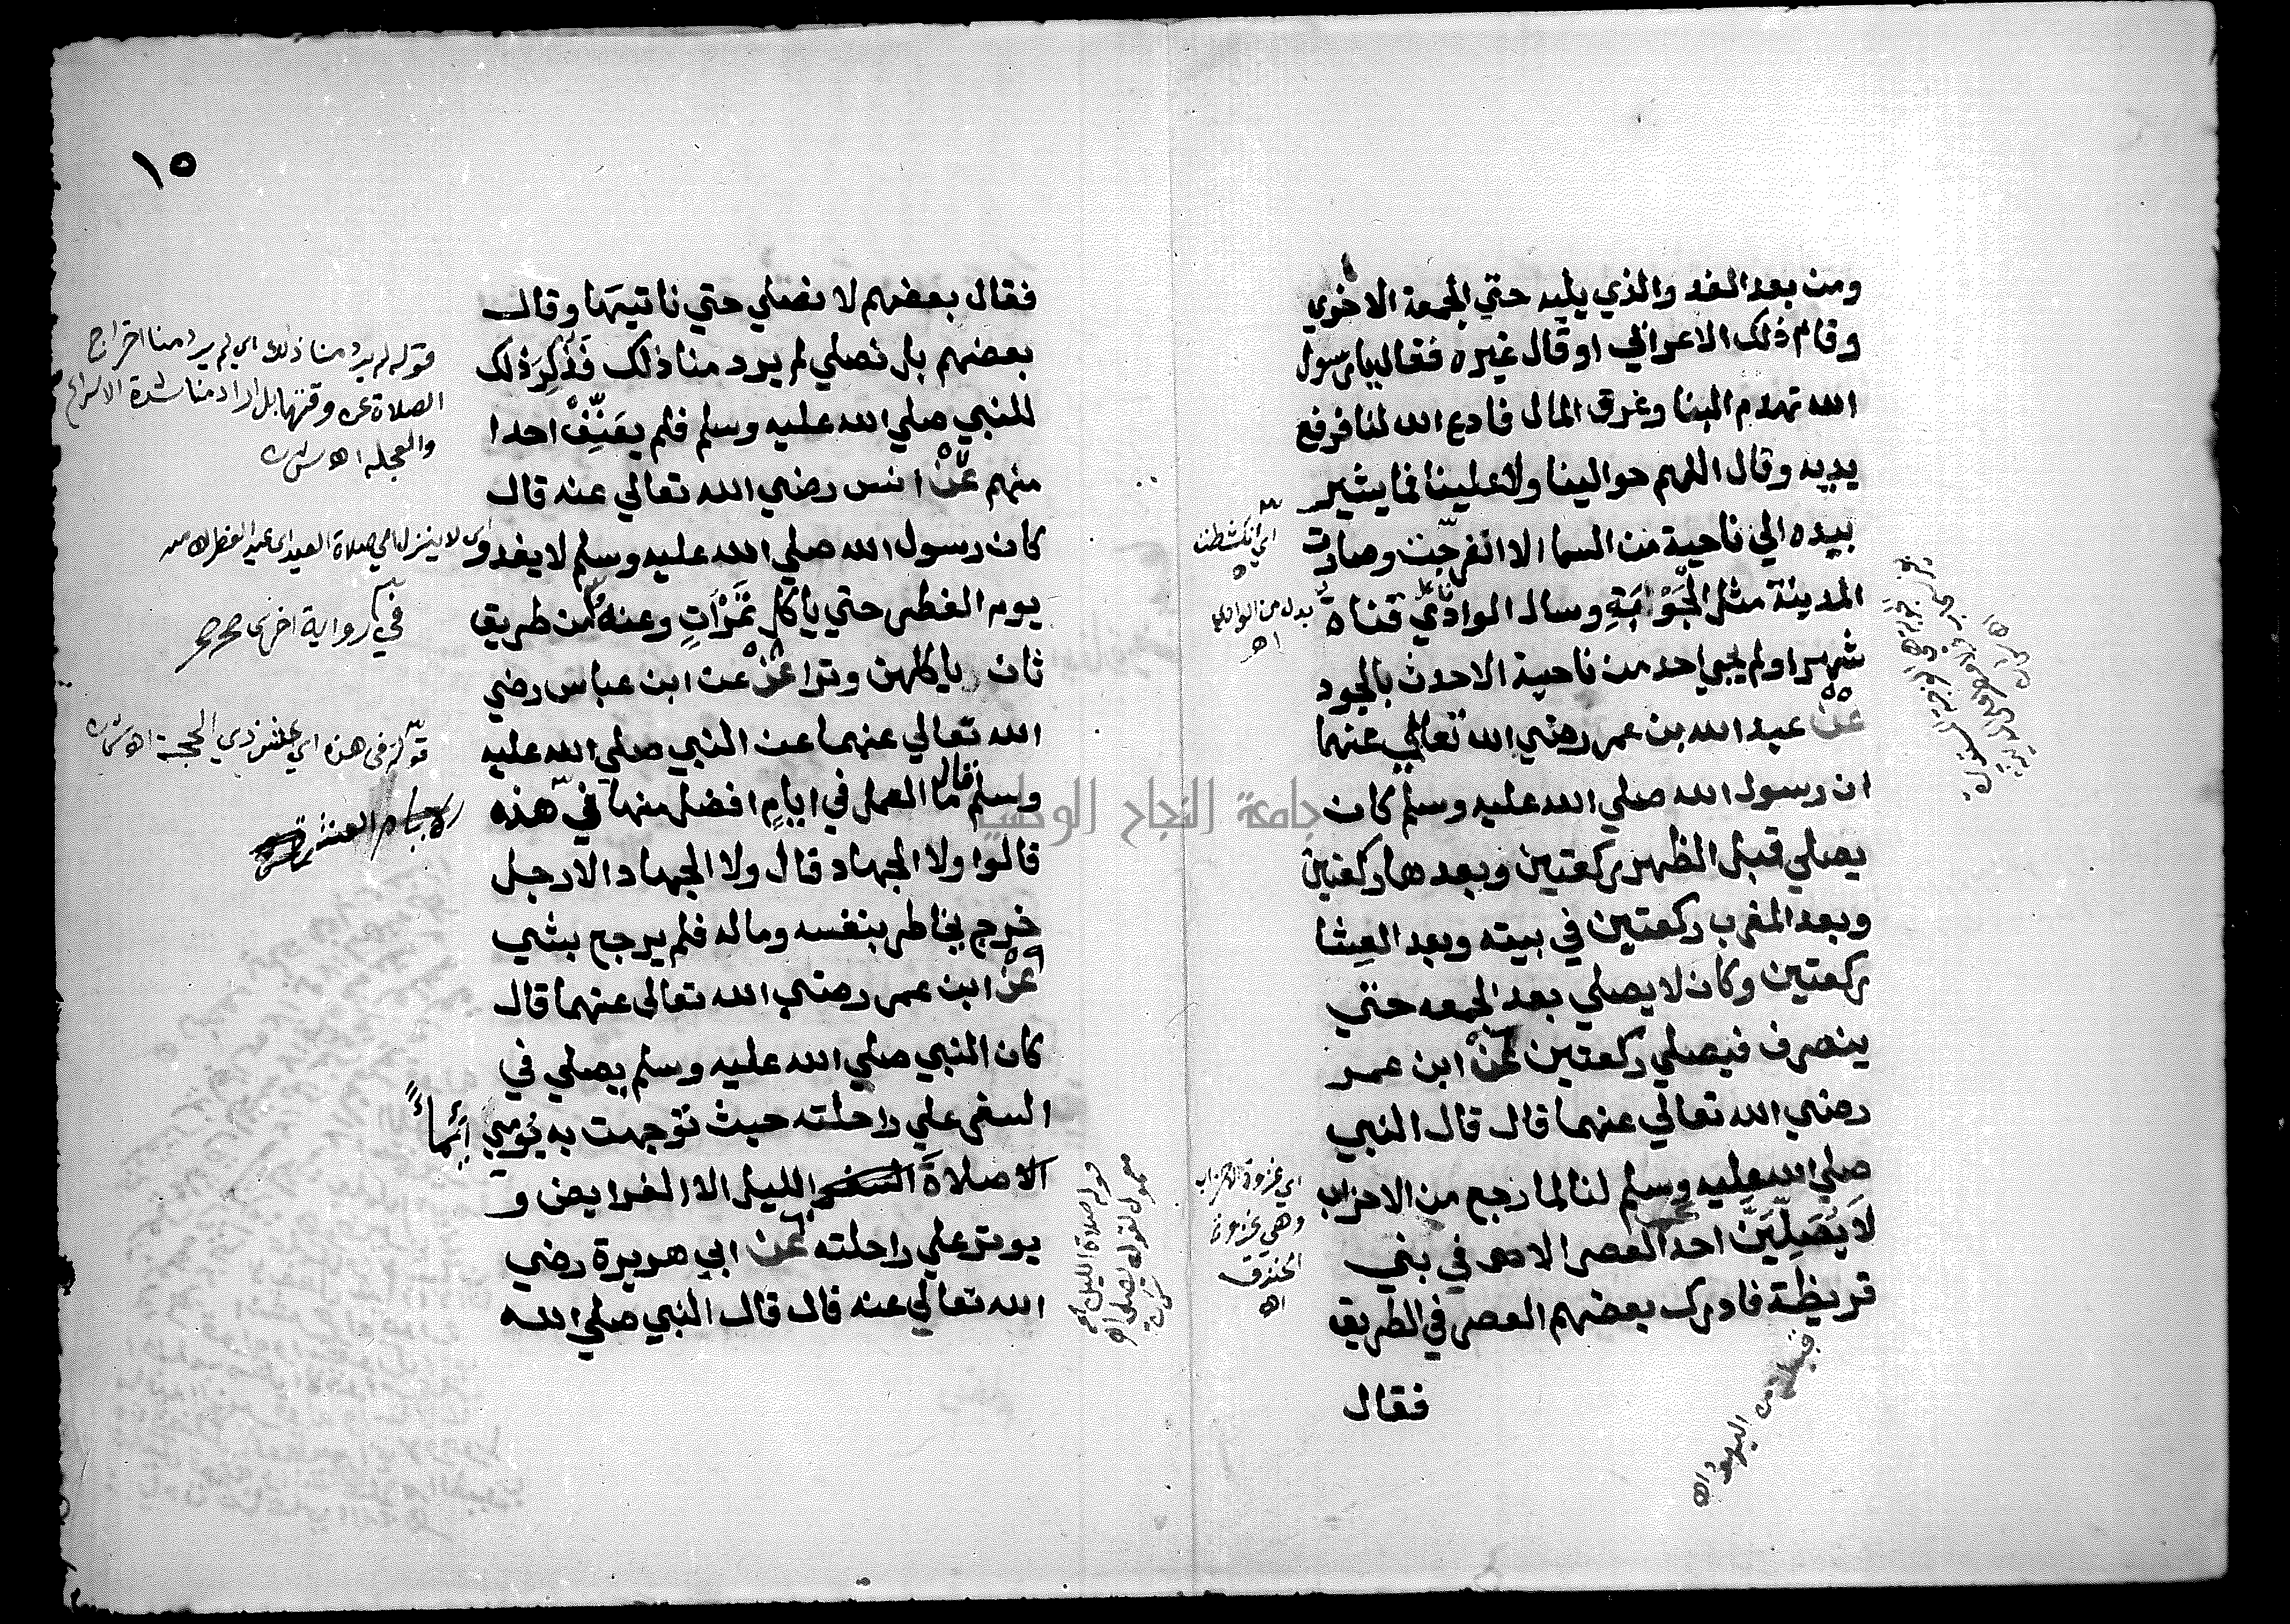 ومن بعد الغد والذي يليه حتي الجمعة الاخري
وقام ذلك الاعرابي او قال غيره فقال يا رسول
الله تهدم البنا وغرق المال فادع الله لنا فرفع
يديه وقال اللهم حوالينا ولا علينا فما يشير
بيده الي ناحية من السما الا انفرجت وصارت
المدينة مثل الجَوْبَةِ وسال الوادي قناة
شهرا ولم يجي احد من ناحية الا حدث بالجود
عن عبد الله بن عمر رضي الله تعالي عنهما
ان رسول الله صلي الله عليه وسلم كان
يصلي قبل الظهر ركعتين وبعدها ركعتين
وبعد المغرب ركعتين في بيته وبعد العشا
ركعتين وكان لا يصلي بعد الجمعه حتي
ينصرف فيصلي ركعتين عن ابن عمر
رضي الله تعالي عنهما قال قال النبي
صلي الله عليه وسلم لنا لما رجع من الاحزاب
لا يُصَلِّيَنَّ احد العصر الا في بني
قريظة فادرك بعضهم العصر في الطريق
فقال
اي انكشطت
بدل من الوادي
اه
اي غزوة الاحزاب
وهي غزوة
الخندق
اه
١٥
فقال بعضهم لا نصلي حتي ناتيها وقال
بعضهم بل نصلي لم يرد منا ذلك فَذُكِرَ ذلك
للنبي صلي الله عليه وسلم فلم يعَنِّفْ احدا
منهم عَنْ انس رضي الله تعالي عنه قال
كان رسول الله صلي الله عليه وسلم لا يغدو
يوم الفطر حتي ياكل تَمَرَاتٍ وعنه من طريق
ثان ياكلهن وترا عن ابن عباس رضي
الله تعالي عنهما عن النبي صلي الله عليه
وسلم قال ما العمل في ايامٍ افضل منها في هذه
قالوا ولا الجهاد قال ولا الجهاد الا رجل
خرج يخاطر بنفسه وماله فلم يرجع بشي
عن ابن عمر رضي الله تعالى عنهما قال
كان النبي صلي الله عليه وسلم يصلي في
السفر علي راحلته حيث توجهت به يومي إيماءً
الا صلاةَ السفر الليل الا الفرايض و
يوتر علي راحلته عن ابي هريرة رضي
الله تعالي عنه قال قال النبي صلي الله
قوله لم يرد منا ذلك اي لم يرد منا اخراج
الصلاة عن وقتها بل اراد منا شدة الاسراع
والعجلة اه
في رواية اخرى
قوله في هذه اي عشر ذي الحجة اه
الايام العشر
قوله صلاة الليل
معمول لقوله يصلي اه
جامعة النجاح الوطنية